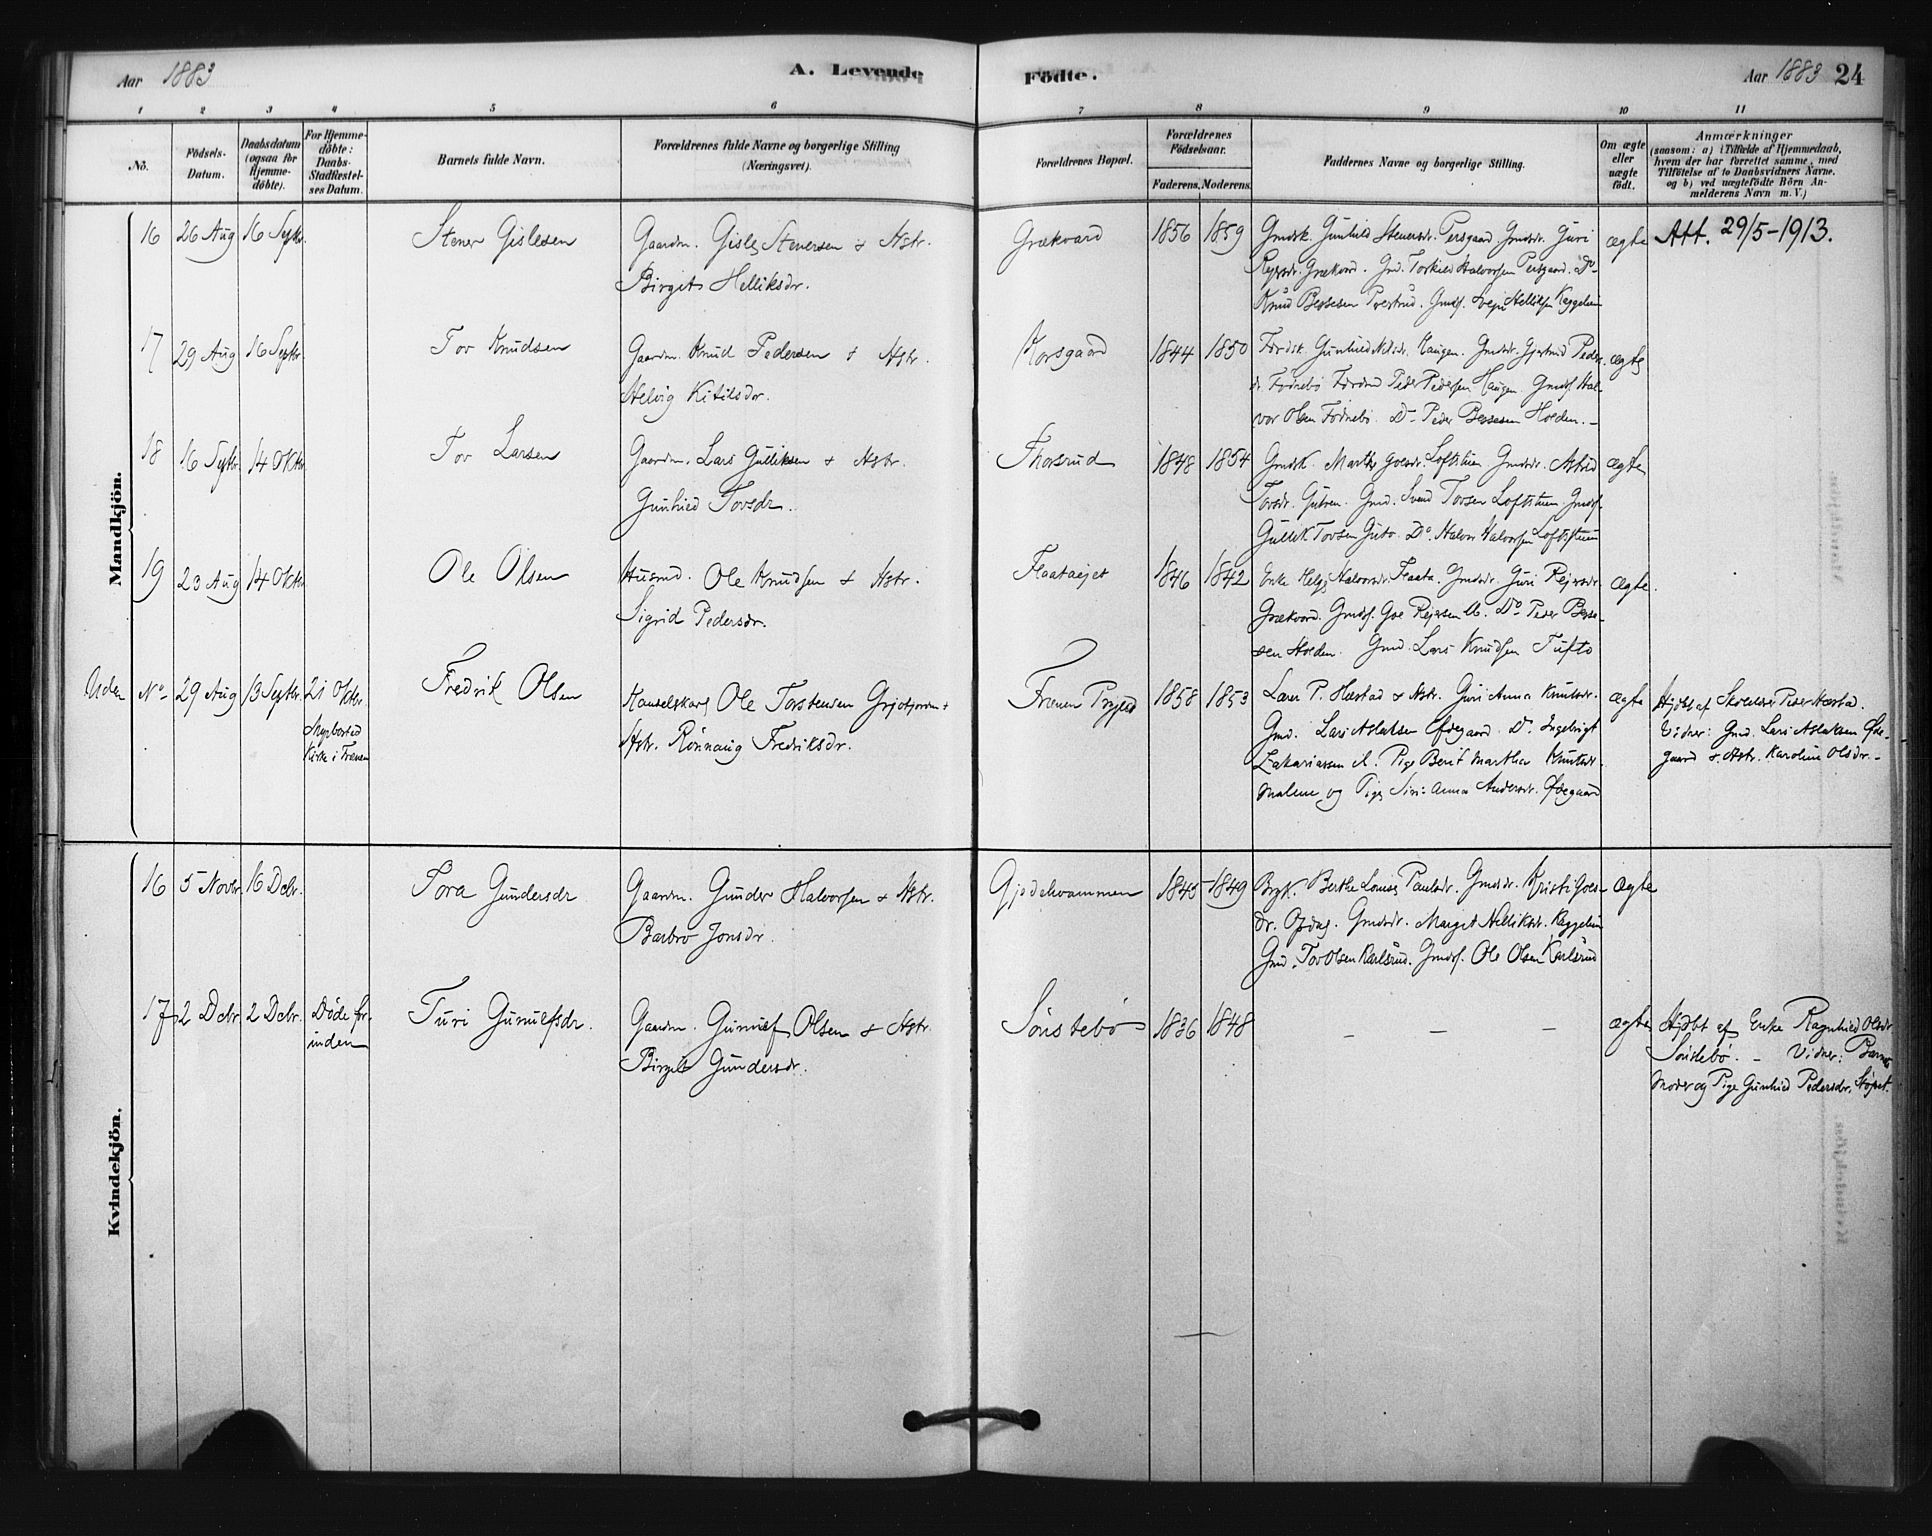 Aar 1883
A. Levende Födte.
Aar 1883 24
1 2 3 4 5 6 7 8 9 10 11
No.
Födsels-
Datum.
Daabsdatum
(ogsaa for
Hjemme-
döbte).
For Hjemme-
döbte:
Daabs-
Stadfæstel-
ses Datum.
Barnets fulde Navn.
Forældrenes fulde Navne og borgerlige Stilling
(Næringsvei).
Forældrenes Bopæl.
Forældrenes
Födselsaar.
Faderens. Moderens.
Faddernes Navne og borgerlige Stilling.
Om ægte
eller
uægte
födt.
Anmærkninger
(saasom: a) i Tilfælde af Hjemmedaab,
hvem der har forrettet samme, med
Tilföielse af to Daabsvidners Navne,
og b) ved uægtefödte Börn An-
melderens Navn m. V.)
Mandkjön.
16 26 Aug 16 Septr. Stener Gislesen
Gaardm. Gisle Stenersen & Hstr.
Birgit Helliksdr.
Grækvard 1856 1859
Gmdsk. Gunhild Stenersdr. Persgaard Gmdsdr. Guri
Rejersdr. Grækvard. Gmd. Torkild Halvorsen Persgaard. Do
Knud Bessesen Præstrud. Gmds. Svein Helliksen Kaggelien
ægte Att. 29/5-1913.
17 29 Aug 16 Septr. Tov Knudsen
Gaardm. Knud Pedersen & Hstr.
Helvig Kittilsdr.
Korsgaard 1844 1850
Gunhild Nilsdr. Haugen. Gmdsdr. Gjertrud Peders-
dr. Fönebö Peder Pedersen Haugen Gmds. Hal-
vor Olsen Fönebö. Do Peder Bessesen Holden. -
ægte
18 16 Septr. 14 Oktbr. Tov Larsen
Gaardm. Lars Gulliksen & Hstr.
Gunhild Tovsdr.
Thorsrud 1848 1854
Gmdsk. Marthe Goesdr. Loftstuen Gmdsdr. Astrid
Tovsdr. Gmd. Svend Tovsen Loftstuen Gmds.
Gullik Tovsen Do. Halvor Halvorsen Loftstuen
ægte
19 23 Aug 14 Oktbr. Ole Olsen
Husmd. Ole Knudsen & Hstr.
Sigrid Pedersdr.
Flaataejet 1846 1842
Enke Helge Halvorsdr. Flaata. Gmdsdr. Guri Rejersdr.
Grækvard. Gmds. Goe Rejersen ib. Do Peder Besse-
sen Holden. Gmd. Lars Knudsen Tufto
ægte
Uden No- 29 Aug 13 Septr. 21 Oktbr.
Myrbostad
Kirke i Frænen
Fredrik Olsen
Handelskarl Ole Torstensen Grjotjorden &
Hstr. Rönnaug Fredriksdr.
Frænen Prgjeld 1858 1853
Lærer P. Hæstad & Hstr. Guri Anna Knutsdr.
Gmd. Lars Aslaksen Ödegaard Do. Ingebrigt
Zakariassen ib. Pige Berit Martha Knutsdr.
Malene og Pige Siri Anna Andersdr. Ödegaard
ægte
Hjdbt af Skolelærer Peder Hæstad.
Vidner: Gmd. Lars Aslaksen Öde-
gaard & Hstr. Karoline Olsdr. -
Kvindekjön.
16 5 Novbr. 16 Dcbr. Tora Gundersdr
Gaardm. Gunder Halvorsen & Hstr.
Barbro Jonsdr.
Gjedehvammen 1845 1849
Berthe Louise Paulsdr. Gmdsdr. Kristi Goes-
dr. Opdag. Gmdsdr. Margit Helliksdr. Kaggelien
Gmd. Tov Olsen Karlsrud. Gmds. Ole Olsen Karlsrud
ægte
17 2 Dcbr. 2 Dcbr. Döde for-
inden
Turi Gunulfsdr.
Gaardm. Gunulf Olsen & Hstr.
Birgit Gundersdr.
Sönstebö 1836 1848 - - -
ægte
Hjdbt af Enke Ragnhild Olsdr
Sönstebö. - Vidner: Barnets
Moder og Pige Gunhild Pedersdr.